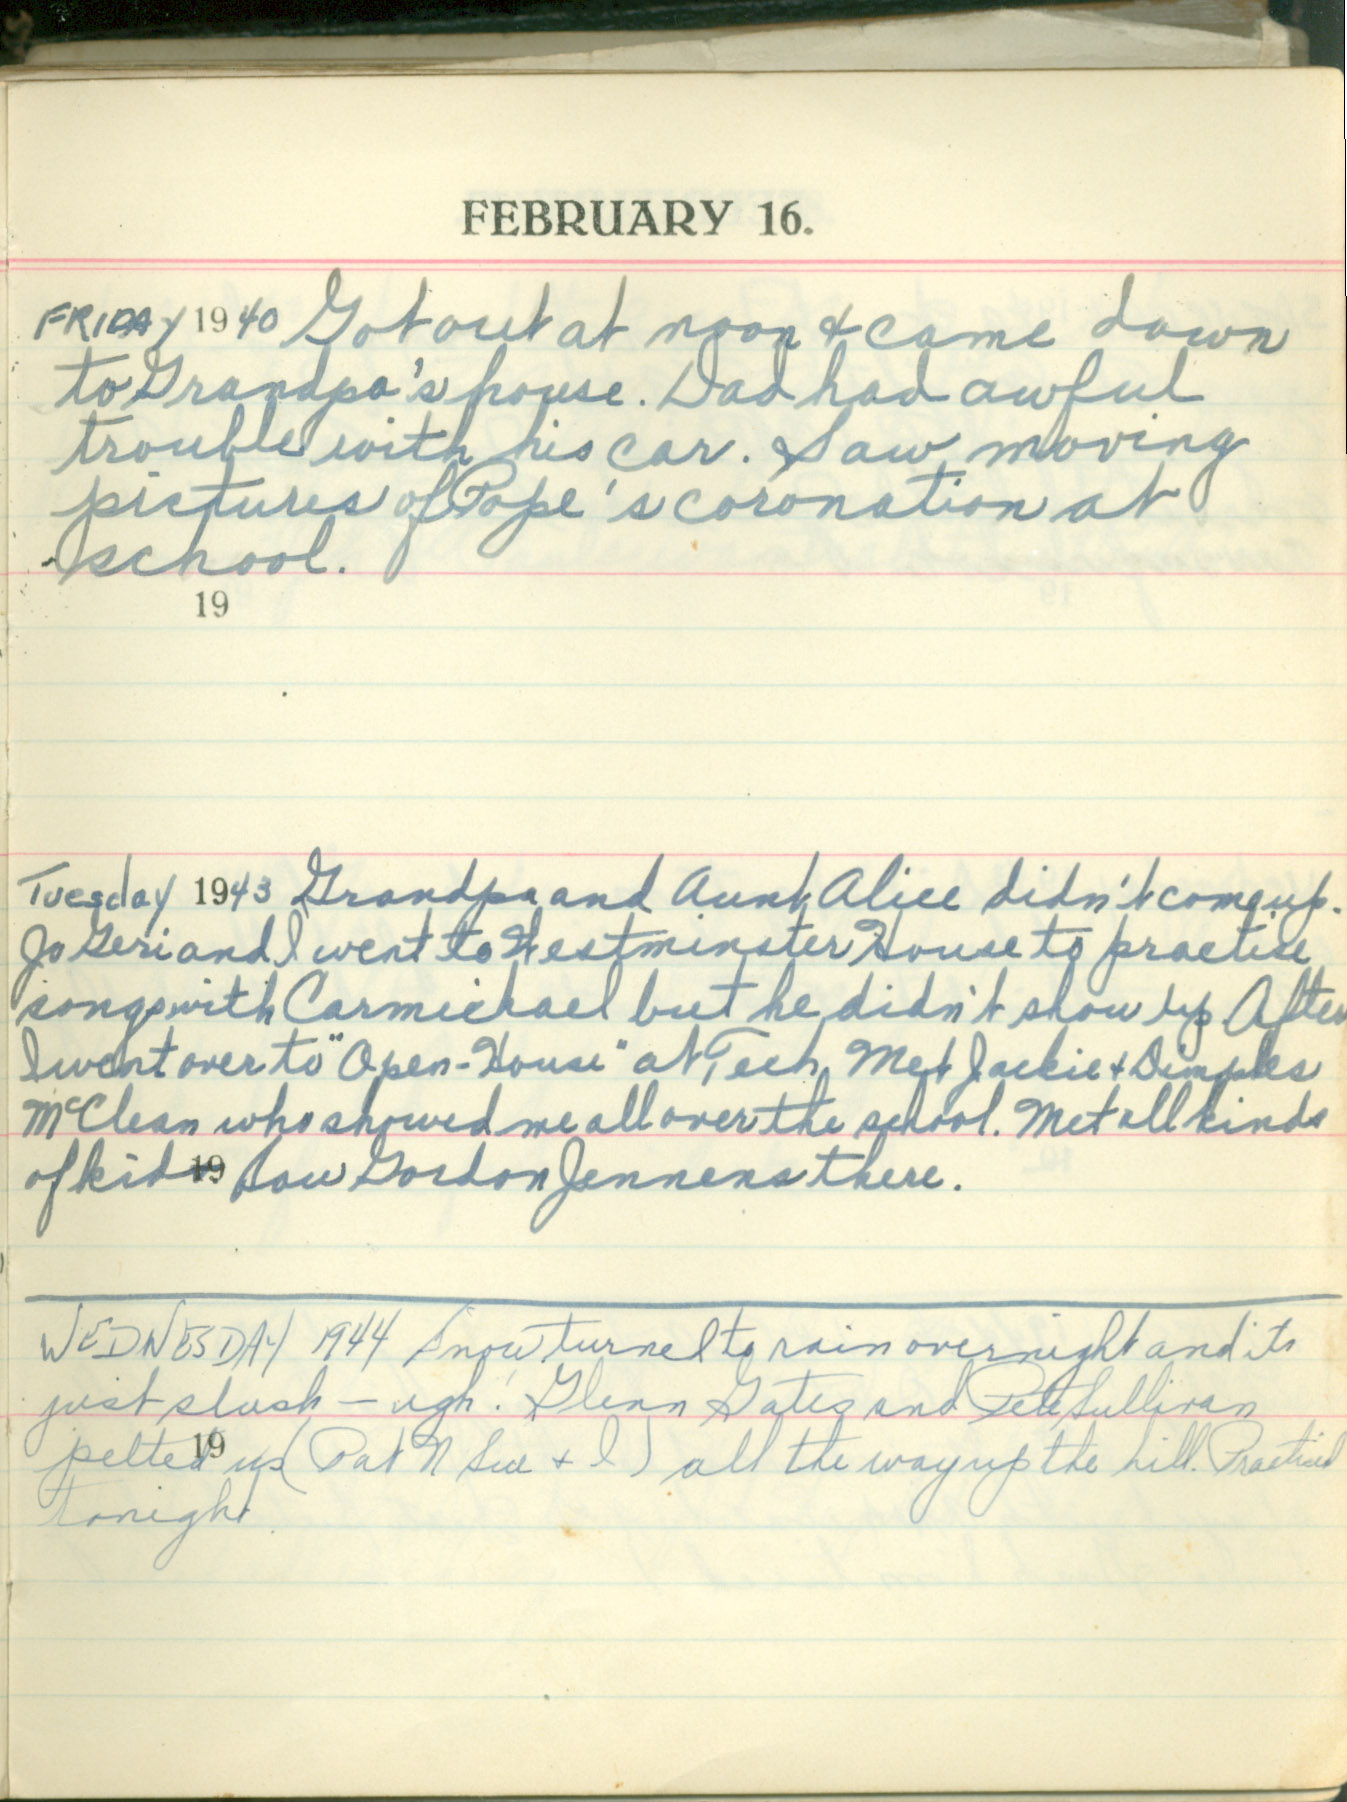 FEBRUARY 16.
FRIDAY 1940 Got out at noon & came down
to Grandpa's house. Dad had awful
trouble with his car. Saw moving
pictures of Pope's coronation at
school.
19
Tuesday 1943 Grandpa and Aunt Alice didn't come up.
Jo Geri and I went to Westminster House to practise
songs with Carmichael but he didn't show up. After
I went over to "Open-House" at Tech. Met Jackie & Dimples
McClean who showed me all over the school. Met all kinds
of kids 19 Saw Gordon Jennens there.
WEDNESDAY 1944 Snow turned to rain overnight and its
just slush — ugh! Glenn Gates and Pete Sullivan
19
pelted us (Pat N Sue & I) all the way up the hill. Practised
tonight